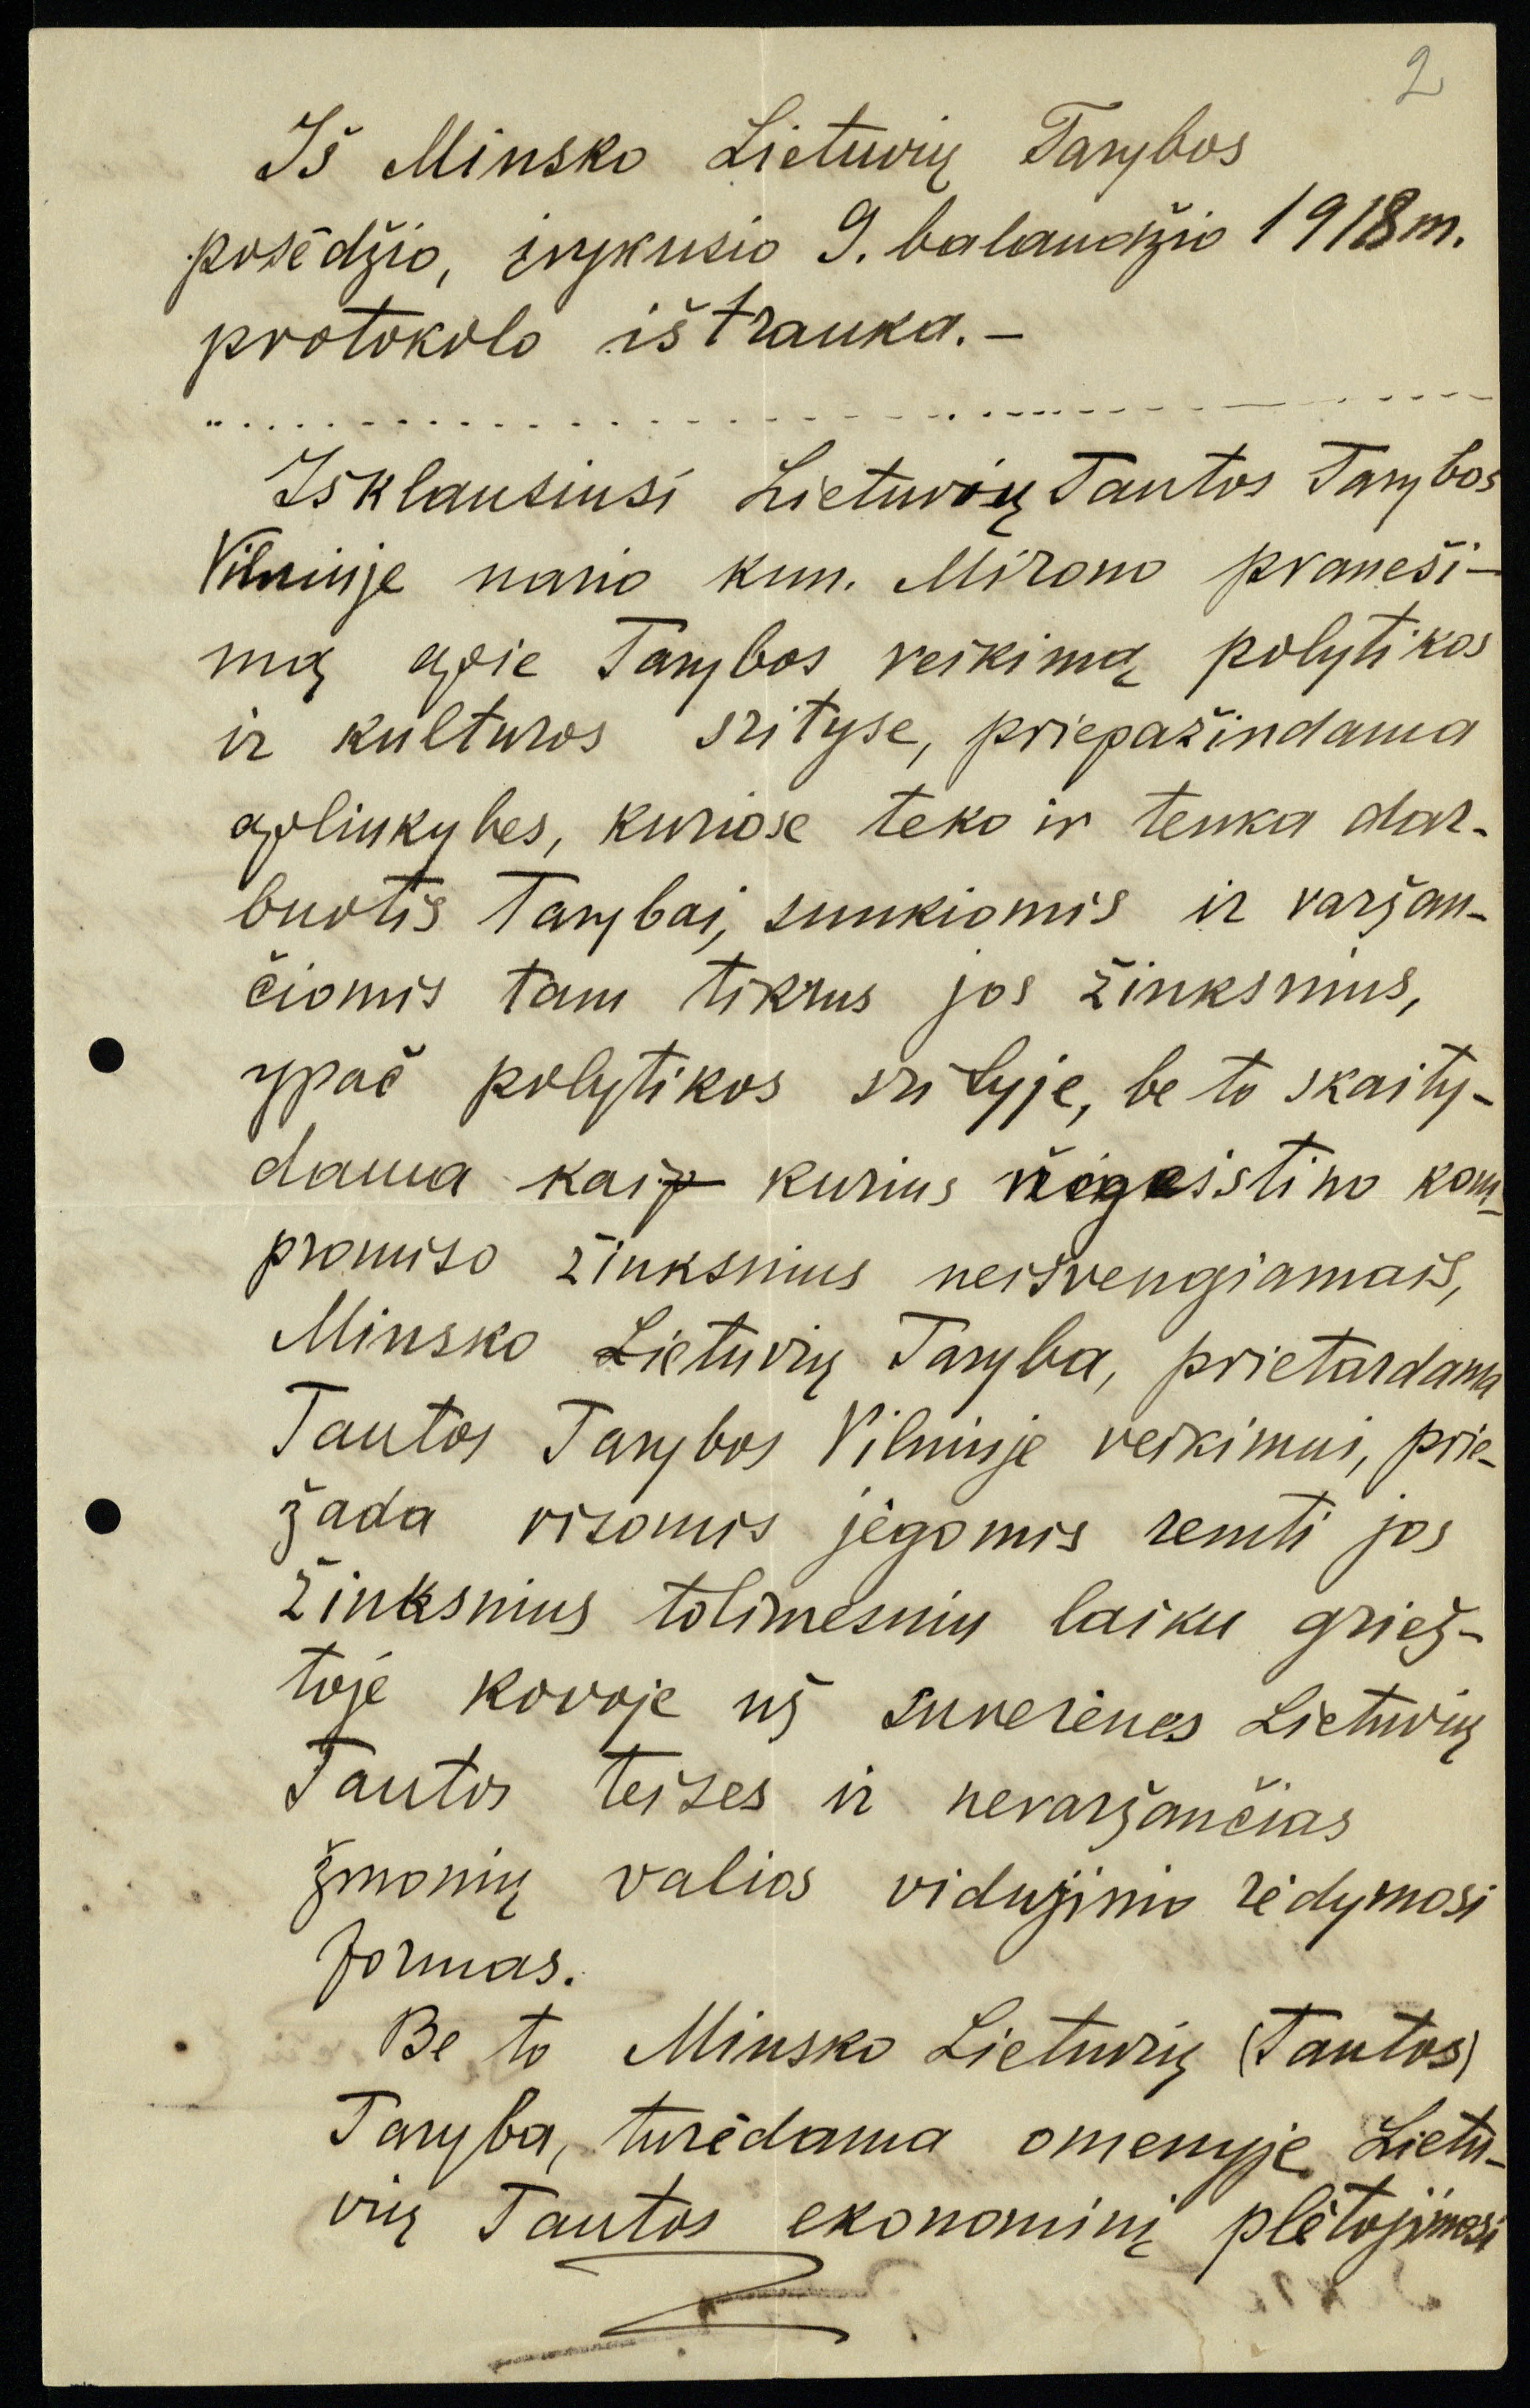 2
Iš Minsko Lietuvių Tarybos
posėdžio, įvykusio 9. balandžio 1918 m.
protokolo ištrauka. —
Išklausiusi Lietuvių Tautos Tarybos
Vilniuje nario kun. Mirono praneši-
mą apie Tarybos veikimą polytikos
ir kulturos srityse, priepažindama
aplinkybes, kuriose teko ir tenka dar-
buotis Tarybai, sunkiomis ir varžan-
čiomis tam tikrus jos žinksnius,
ypač polytikos srityje, be to skaity-
dama kai kurius kom-
promiso žinksnius neišvengiamais,
Minsko Lietuvių Taryba, prietardama
Tautos Tarybos Vilniuje veikimui, prie-
žada visomis jėgomis remti jos
žinksnius tolimesniu laiku griež-
toje kovoje už suverenes Lietuvių
Tautos teises ir nevaržančias
žmonių valios vidujinio rėdymosi
formas.
Be to Minsko Lietuvių (Tautos)
Taryba, turėdama omenyje Lietu-
vių Tautos ekonominį plėtojimosi